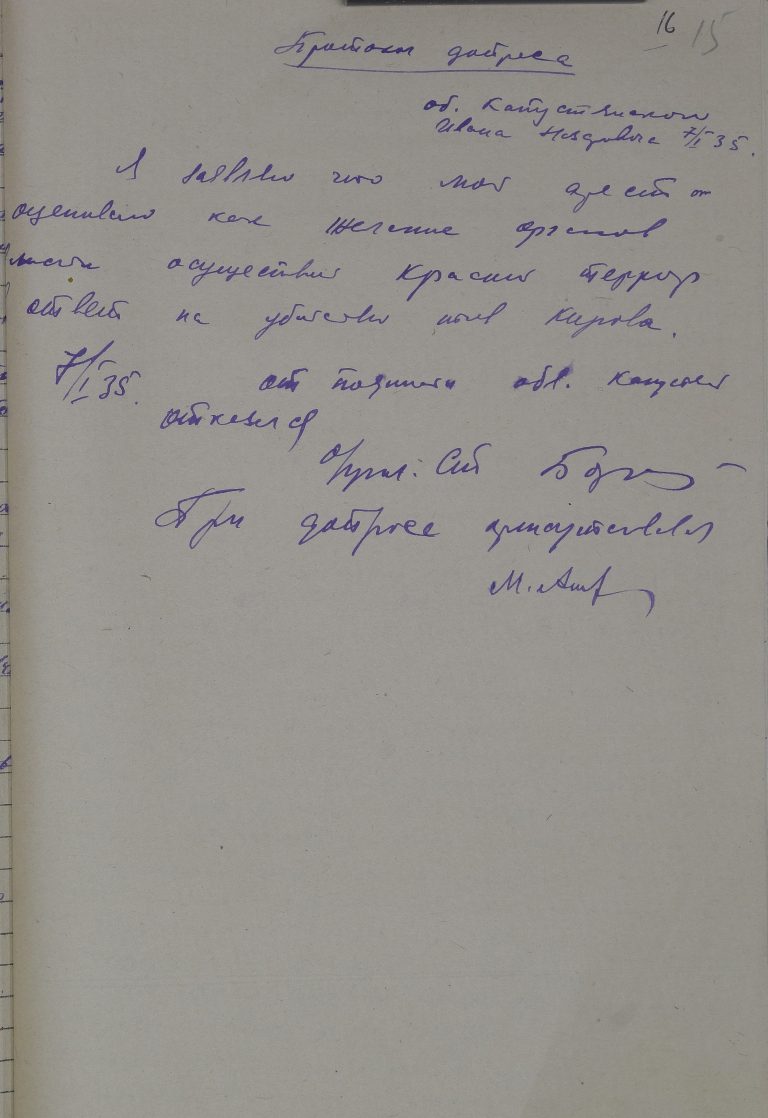 16 15
Протокол допроса
об. Капустянского
Ивана 7/I 35.
Я заявляю что мой арест
оцениваю как желание органов
власти осуществит Красный террор
ответ на убийство Кирова.
7/I 35. от подписи обв. Капустян
отказался
При допросе присутствовал